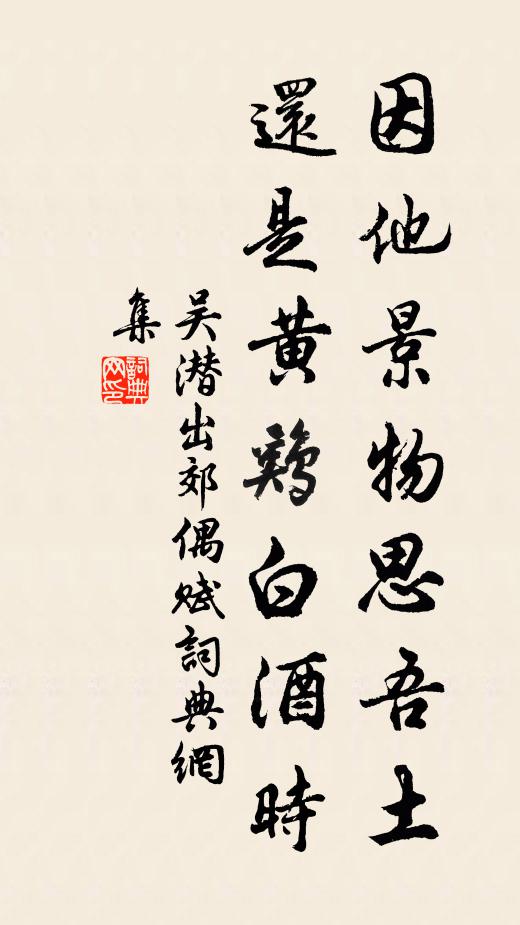 因他景物思吾土
還是黃鷄白酒時
吴潜出郊偶赋詞典網
集
詞典
网印